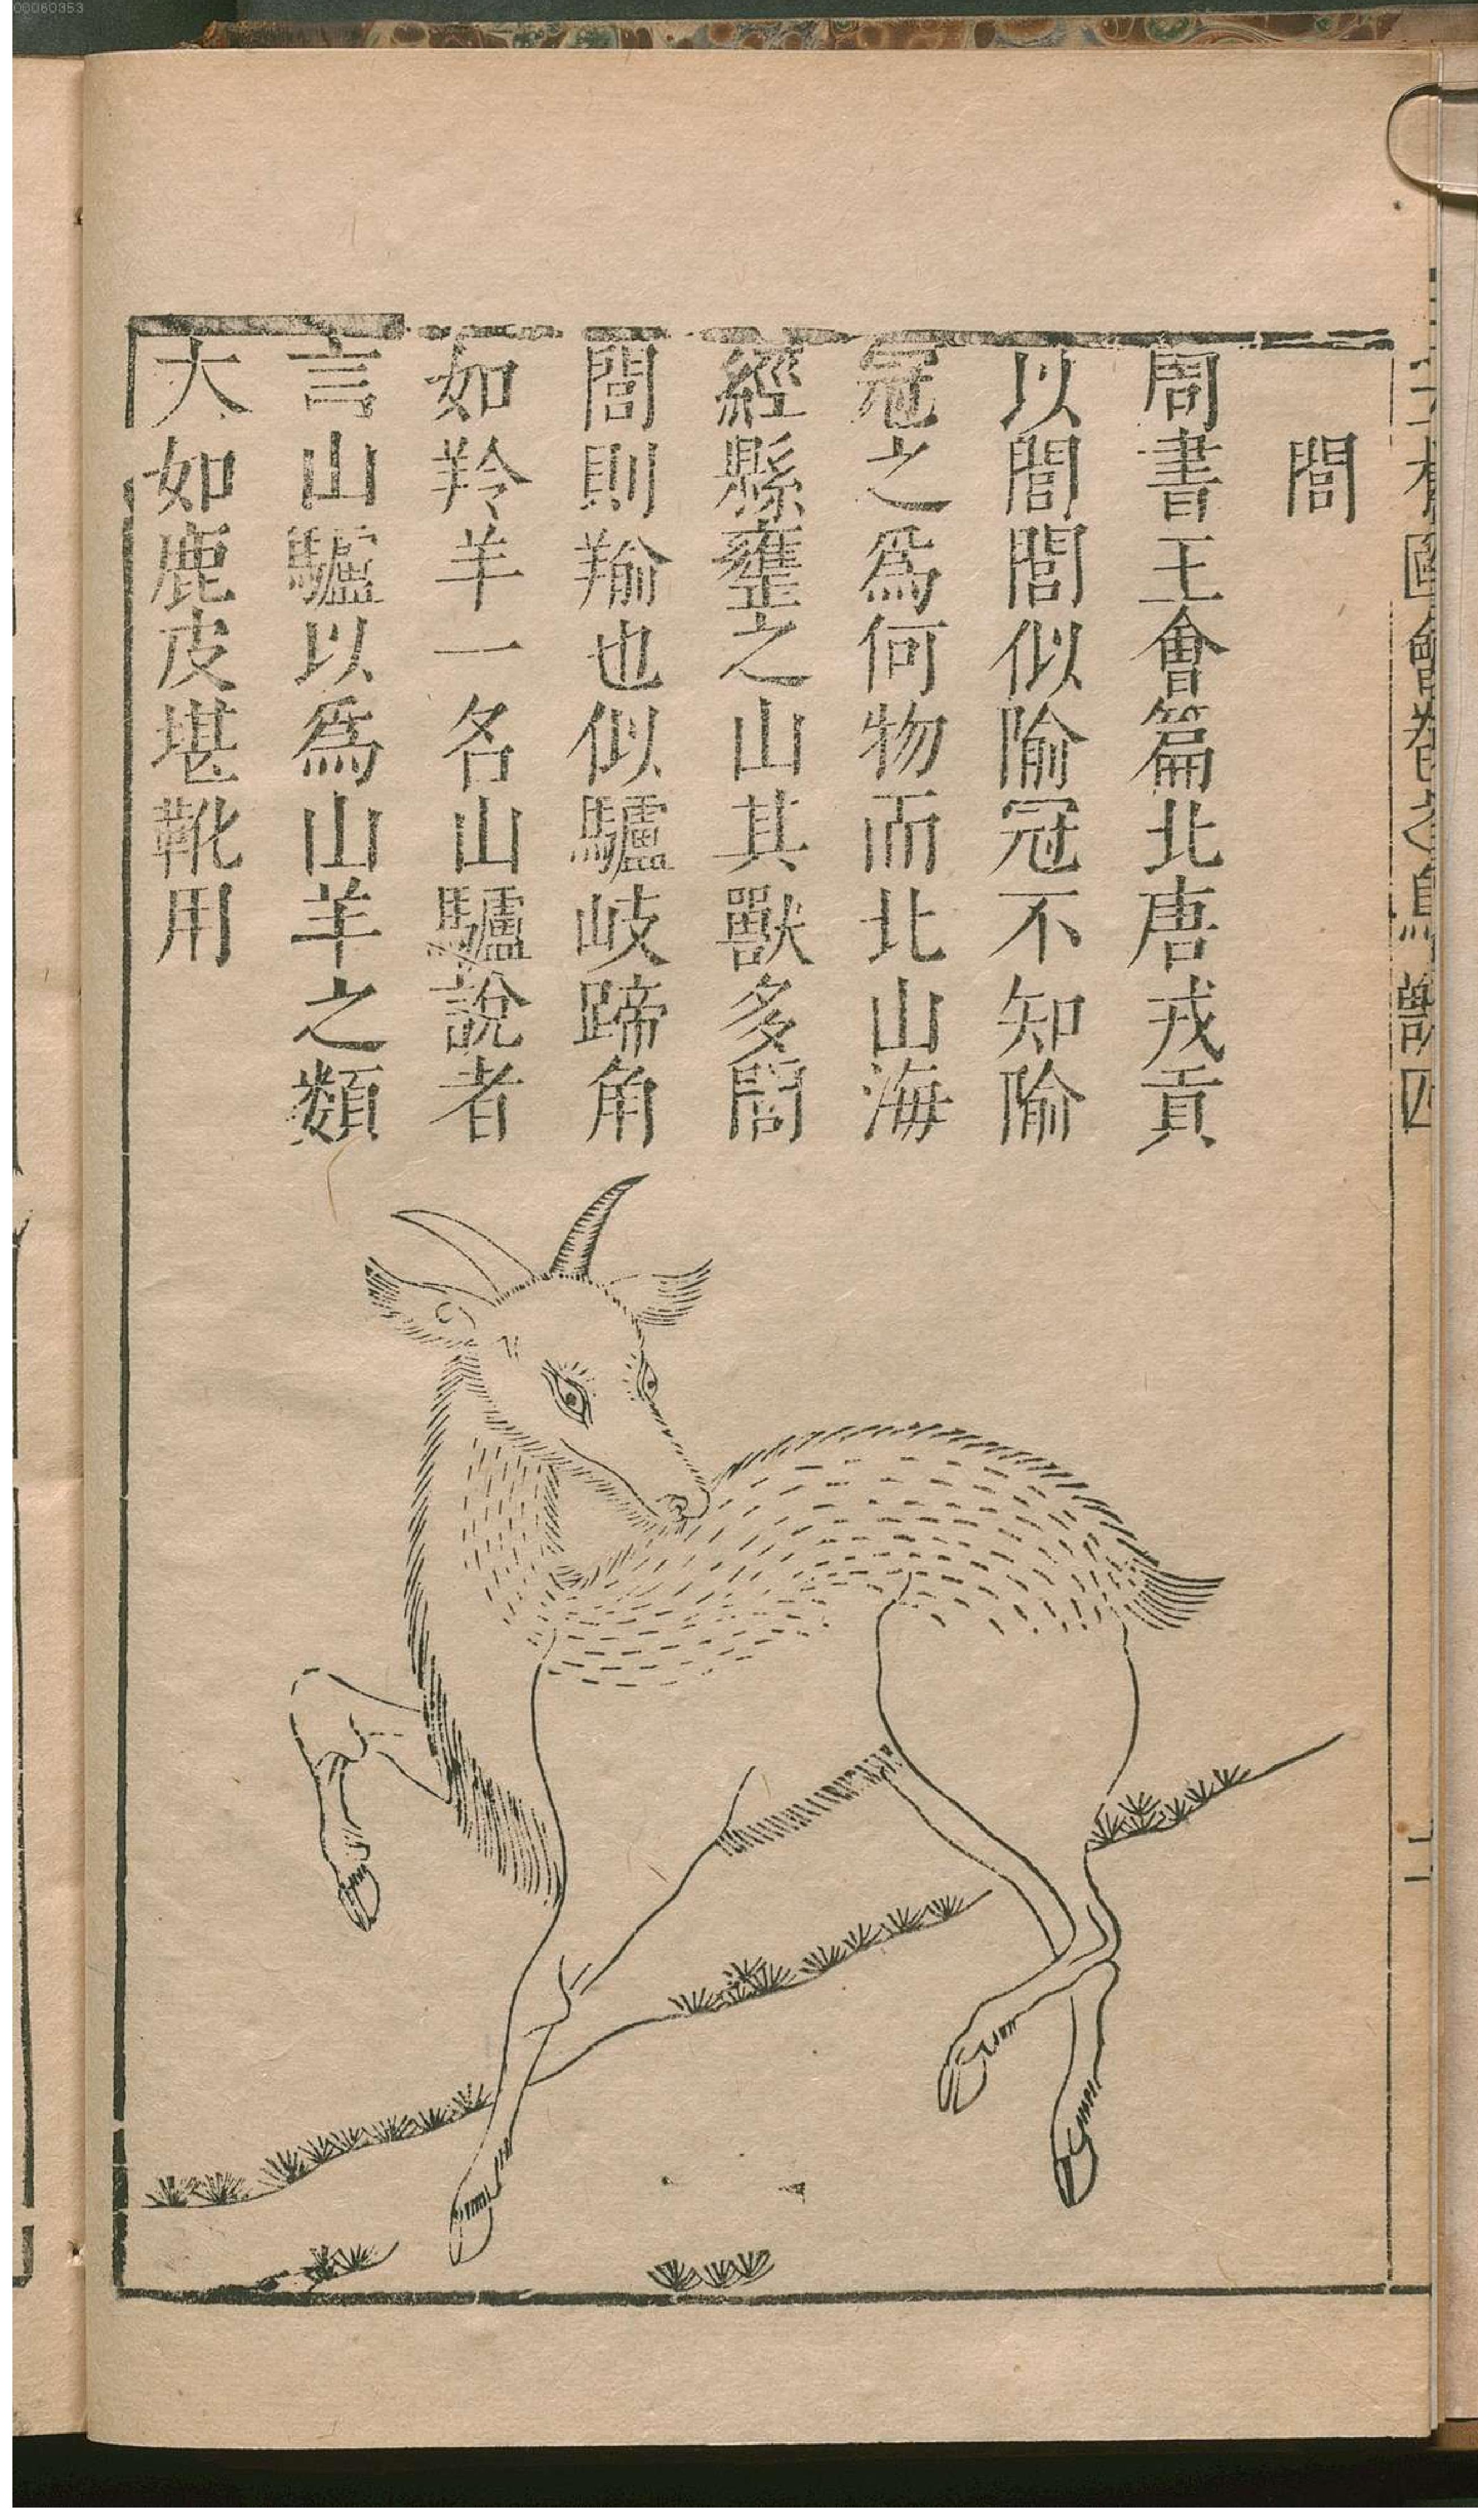 閭
周書王會篇北唐戎貢
以閭閭似隃冠不知隃
冠之爲何物而北山海
經縣壅之山其獸多閭
閭則羭也似驢岐蹄角
如羚羊一名山驢說者
言山驢以爲山羊之類
大如鹿皮堪靴用
國會卷之鳥獸四
00060353